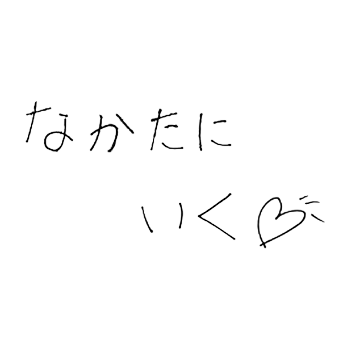 なかたに
いく♡